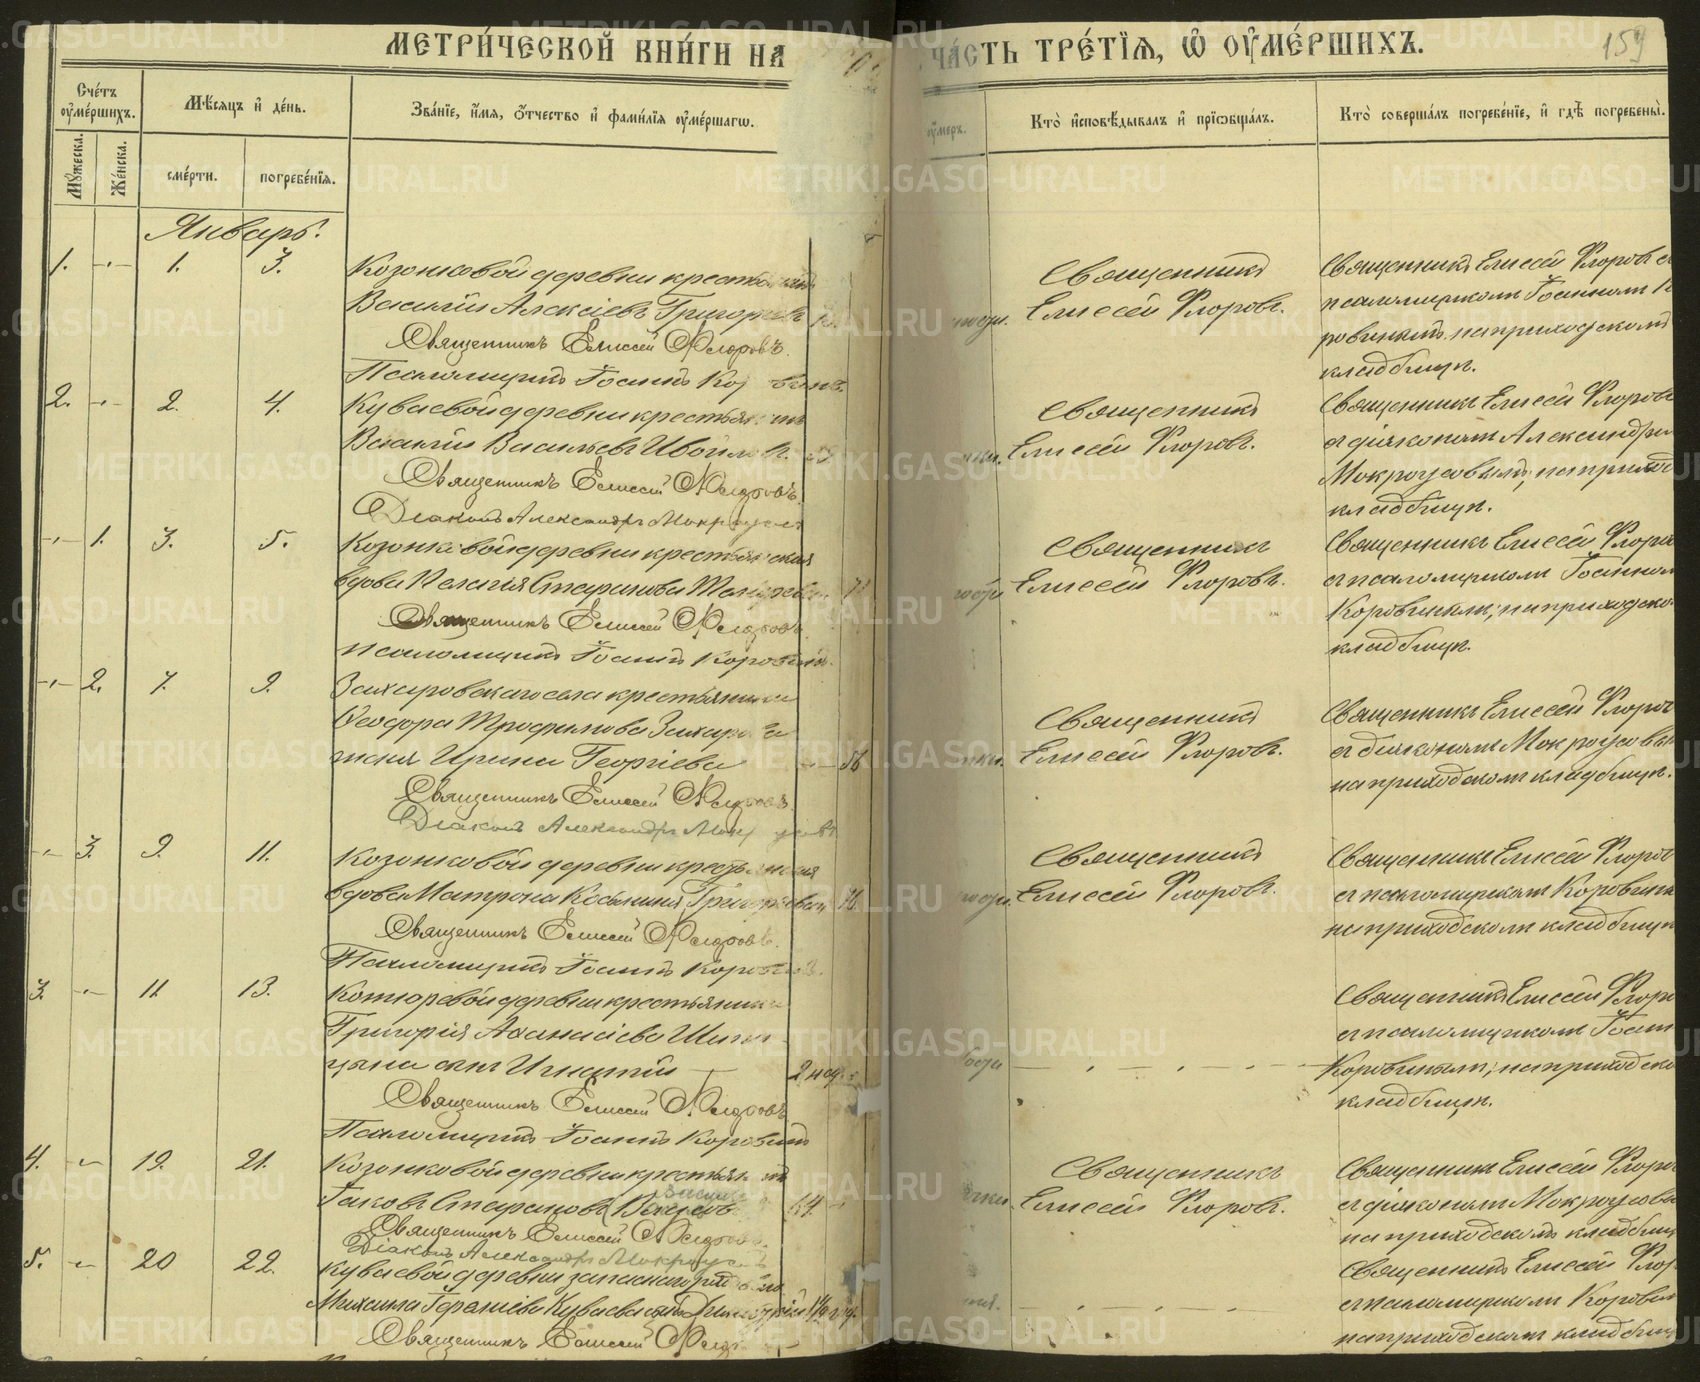 МЕТРИ́ЧЕСКОЙ КНИ́ГИ НА
ЧА́СТЬ ТРЕ́ТЇѦ, Ѡ҆ ОУ҆МЕ́РШИХЪ.
159
Сче́тъ оу҆ме́ршихъ.
Мѣ́сяцъ и҆ де́нь.
Зва́нїе, и҆́мя, ѻ҆́тчество и҆ фами́лїя оу҆ме́ршагѡ.
оу҆́меръ.
Кто̀ и҆сповѣ́дывалъ и҆ прїѡбща́лъ.
Кто̀ соверша́лъ погребе́нїе, и҆ гдѣ̀ погребены̀.
Му́жеска.
Же́нска.
сме́рти.
погребе́нїя.
Январь.
1. -"- 1. 3.
Козонковой деревни крестьянинъ
Василий Алексіевъ Григорьевъ
Священникъ Елиссей Флоровъ.
Псаломщикъ Іоаннъ Коровинъ.
Священникъ
Елисей Флоровъ.
Священникъ Елисей Флоровъ съ
псаломщикомъ Іоанномъ Ко
ровинымъ. на приходскомъ
кладбищѣ.
2. -"- 2. 4.
Куваевой деревни крестьянинъ
Василій Васильевъ Ивойловъ.
Священникъ Елиссей Флоровъ.
Діаконъ Александръ Мокроусовъ
Священникъ
Елисей Флоровъ.
Священникъ Елисей Флоровъ
съ діакономъ Александромъ
Мокроусовымъ; на приход
кладбищѣ.
-"- 1. 3. 5.
Козонковой деревни крестьянская
вдова Пелагія Стефанова
Священникъ Елиссей Флоровъ
Псаломщикъ Іоаннъ Коровинъ.
Священникъ
Елисей Флоровъ.
Священникъ Елисей Флоров
съ псаломщикомъ Іоанном
Коровинымъ; на приходско
кладбищѣ.
-"- 2. 7. 9.
Захаровскаго села крестьянина
Ѳеодора Трофимова Захарова
жена Ирина Георгіева 56
Священникъ Елиссей Флоровъ
Діаконъ Александръ Мокроусовъ
Священникъ
Елисей Флоровъ.
Священникъ Елисей Флоров
съ діакономъ Мокроусовы
на приходскомъ кладбищѣ.
-"- 3. 9. 11.
Козонковой деревни крестьянская
вдова Матрона Космина Григорьева 76
Священникъ Елиссей Флоровъ.
Псаломщикъ Іоаннъ Коровинъ.
Священникъ
Елисей Флоровъ.
Священникъ Елисей Флоров
съ псаломщикомъ Коровины
на приходскомъ кладбищѣ
3. -"- 11. 13.
деревни крестьянина
Григорія Аѳанасіева
сынъ Игнатій 2 нед.
Священникъ Елиссей Флоровъ
Псаломщикъ Іоаннъ Коровинъ
Священникъ Елисей Флоро
съ псаломщикомъ Іоан
Коровинымъ; на приходско
кладбищѣ.
4. -"- 19. 21.
Козонковой деревни крестьянинъ
Іаковъ Стефановъ 64
Священникъ Елиссей Флоровъ.
Діаконъ Александръ Мокроусовъ
Священникъ
Елисей Флоровъ.
Священникъ Елисей Флоро
съ діакономъ Мокроусовы
на приходскомъ кладбищ
5. -"- 20 22.
Куваевой деревни запаснаго рядоваго
Михаила Герасіева Куваева сынъ Димитрій 1½ год.
Священникъ Елиссей Флоровъ
Священникъ Елисей Флор
съ псаломщикомъ Коровин
на приходскомъ кладбищ
METRIKI.GASO-URAL.RU